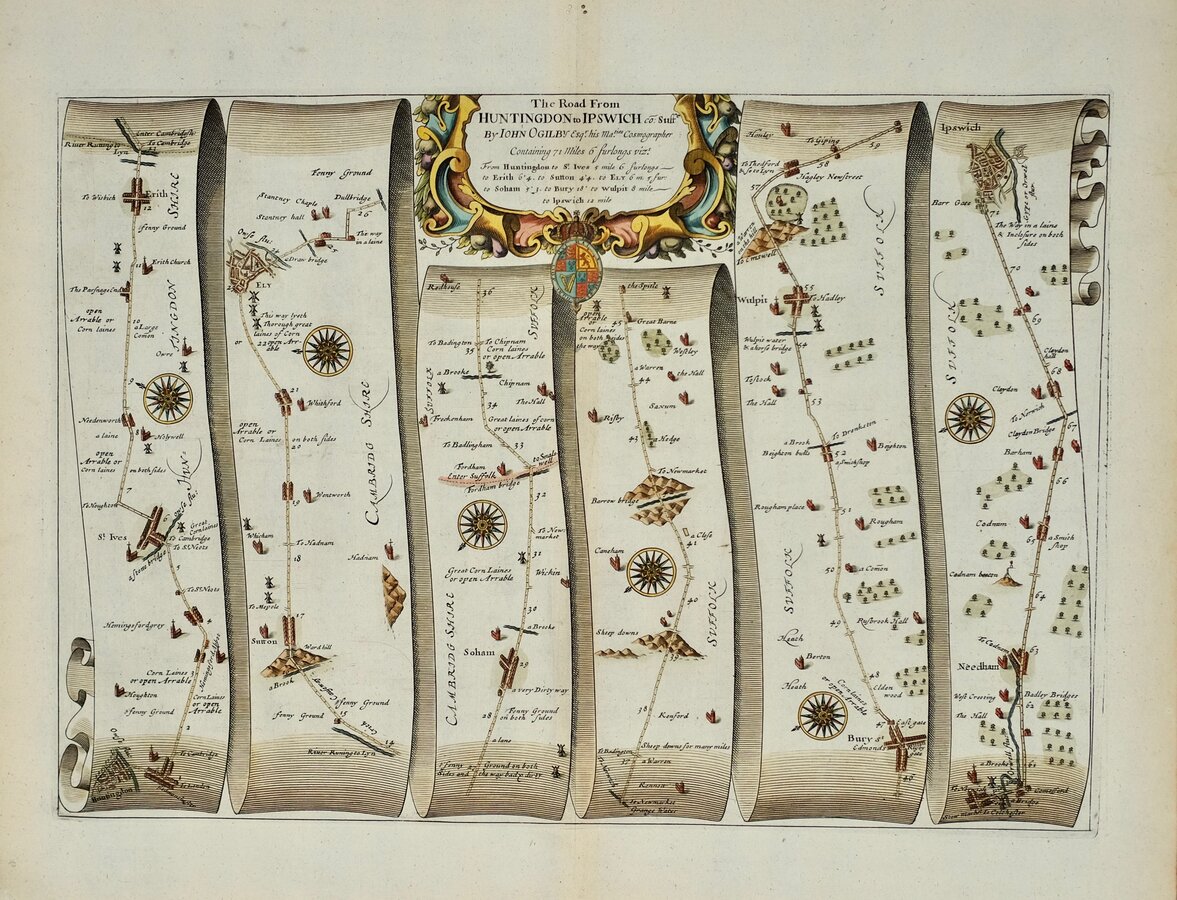 The Road From
HUNTINGDON to IPSWICH co: Suff
By IOHN OGILBY Esqr. his Maties Cosmographer
Containing 71 Miles 6 furlongs vizt.
From Huntingdon to St. Ives 5 mile 6 furlongs
to Erith 6'4. to Sutton 4'4. to ELY 6 m. 5 fur.
to Soham 5'3. to Bury 18' to Wulpit 8 mile
to Ipswich 12 mile
Enter Cambridgsh:
River Runing to Lyn
To Cambridge
To Wisbich
Erith
12
fenny Ground
SHIRE
11
Erith Church
The Parsnage End
open Arrable or Corn laines
10
a Large Comon
TINGDON
Owre
9
Needenworth
8
a laine
Holywell
open Arrable or Corn laines
on both sides
HUN
7
To Houghton
6
Great Corn laines
St. Ives
To Cambridge
To St. Neots
a stone bridge
5
To St. Neots
Hemingsford grey
4
Corn Laines
or open Arrable
3
Houghton
Corn Laines or open Arrable
fenny Ground
2
To Cambridge
To London
Huntingdon
Fenny Ground
Stantney Chaple
Dullbridge
Stantney hall
26
25
The way in a laine
Ouse flu:
a Draw bridge
ELY
This way lyeth
Thorough great
laines of Corn
or 22 open Arrable
21
Whichford
open Arrable or Corn Laines
on both sides
20
CAMBRIDG SHIRE
19
Wentworth
Wicham
To Hadnam
18
Hadnam
To Mepole
17
Sutton
Word hill
a Brook
Fenny Ground
15
fenny Ground
14
River Runing to Lyn
Redhouse
36
SUFFOLK
To Badington
To Chipnam
35
Corn laines
or open Arrable
a Brooke
Chipnam
SUFFOLK
34
The Hall
Freckenham
Great laines of corn
or open Arrable
To Badlingham
33
to Snalewell
Fordham
Enter Suffolk
Fordham bridge
32
To Newmarket
31
Great Corn Laines
or open Arrable
Wickin
30
CAMBRIDG SHIRE
a Brooke
Soham
29
a very Dirty way
28
Fenny Ground
on both sides
a lane
fenny Ground on both
Sides and the way bad & dirty
the Spitle
open Arrable or Corn laines on both sides the way
45
Great Barne
Westley
a Warren
44
the Hall
Saxum
Risby
43
a Hedge
To Newmarket
Barrow bridge
a Close
41
Caneham
40
SUFFOLK
Sheep downs
38
Kenford
To Badington
Sheep downs for many miles
37
a Warren
Kennet
to Newmarket
Grange Water
Howley
To Giping
59
To Thedford
& So to Lyn
58
Hagley Newstreet
57
SUFFOLK
To Emswell
55
Wulpit
To Hadley
Wulpit water
& a horse bridge
54
Tostock
The Hall
53
a Brook
To Drenkston
Beighton bulls
52
Beighton
a Smith shop
Rougham place
51
Rougham
SUFFOLK
50
a Comon
49
Rusbrook Hall
Heath
Berton
48
Heath
Corn laines or open Arrable
Eldon wood
47
East gate
Bury St. Edmonds
46
Ipswich
Barr Gate
71
The Way in a laine
& Inclosure on both
sides
70
SUFFOLK
69
Claydon hall
68
Claydon
To Norwich
67
Claydon Bridge
Barham
66
Codnam
65
a Smith shop
Codnam beacon
64
To Codnam
63
Needham
West Creeting
Badley Bridges
The Hall
61
a Brooke
Comesford
a Bridge